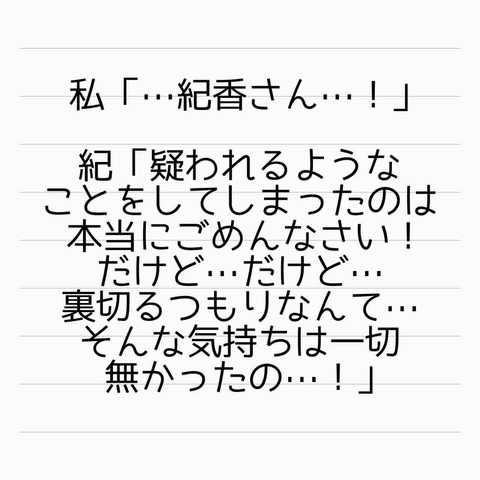 私「…紀香さん…！」
紀「疑われるような
ことをしてしまったのは
本当にごめんなさい！
だけど…だけど…
裏切るつもりなんて…
そんな気持ちは一切
無かったの…！」